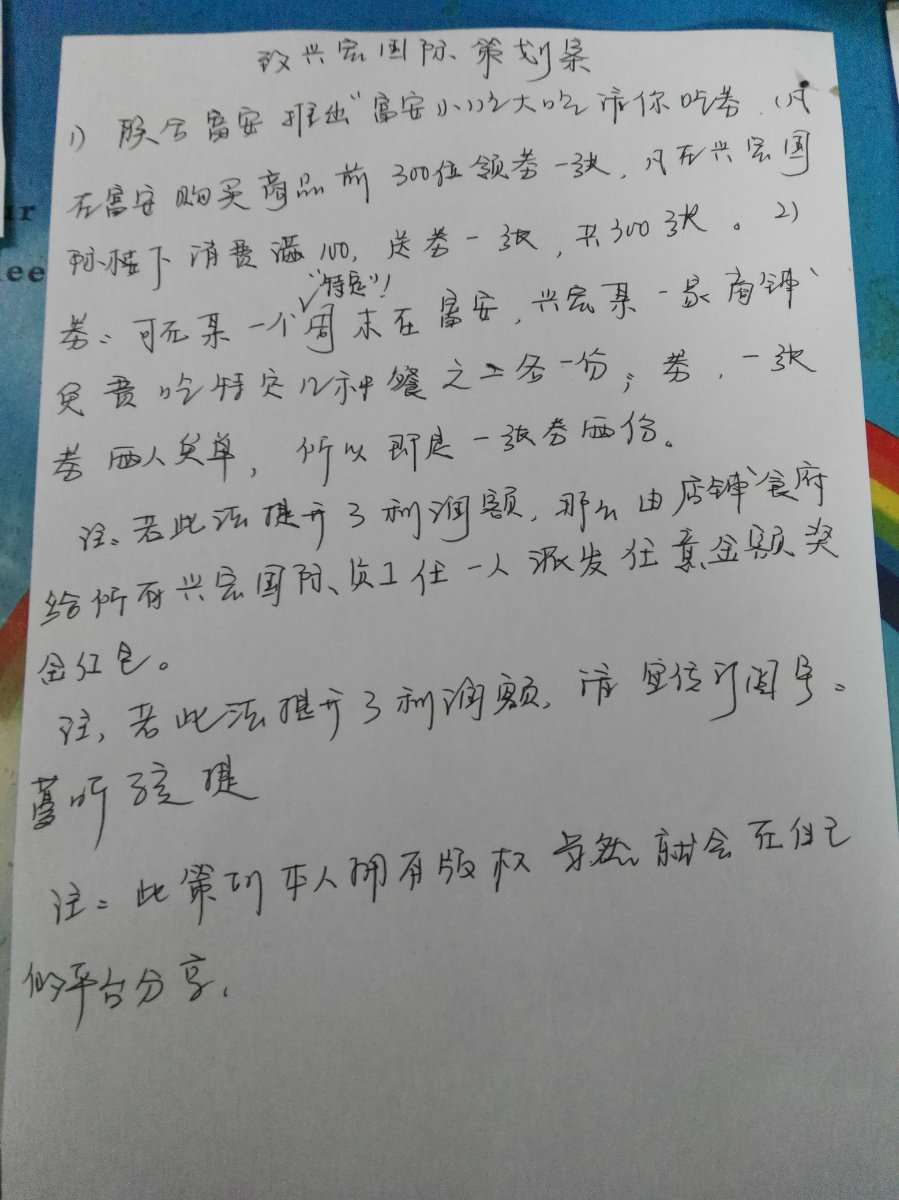 致兴宏国际策划案
1) 联合富安推出“富安小吃大吃请你吃券，凡
在富安购买商品前300位领券一张，凡在兴宏国
际楼下消费满100，送券一张，共300张。2)
“特定”！
券：可在某一个周末在富安，兴宏某一家商铺
免费吃特定几种餐之二各一份；券，一张
券两人免单，所以即是一张券两份。
注。若此法提升了利润额，那么由店铺食府
给所有兴宏国际、员工任一人派发任意金额奖
金红包。
注，若此法提升了利润额，请宣传订阅号。
听 提
注：此策划本人拥有版权 就会在自己
的平台分享，
ur
ee